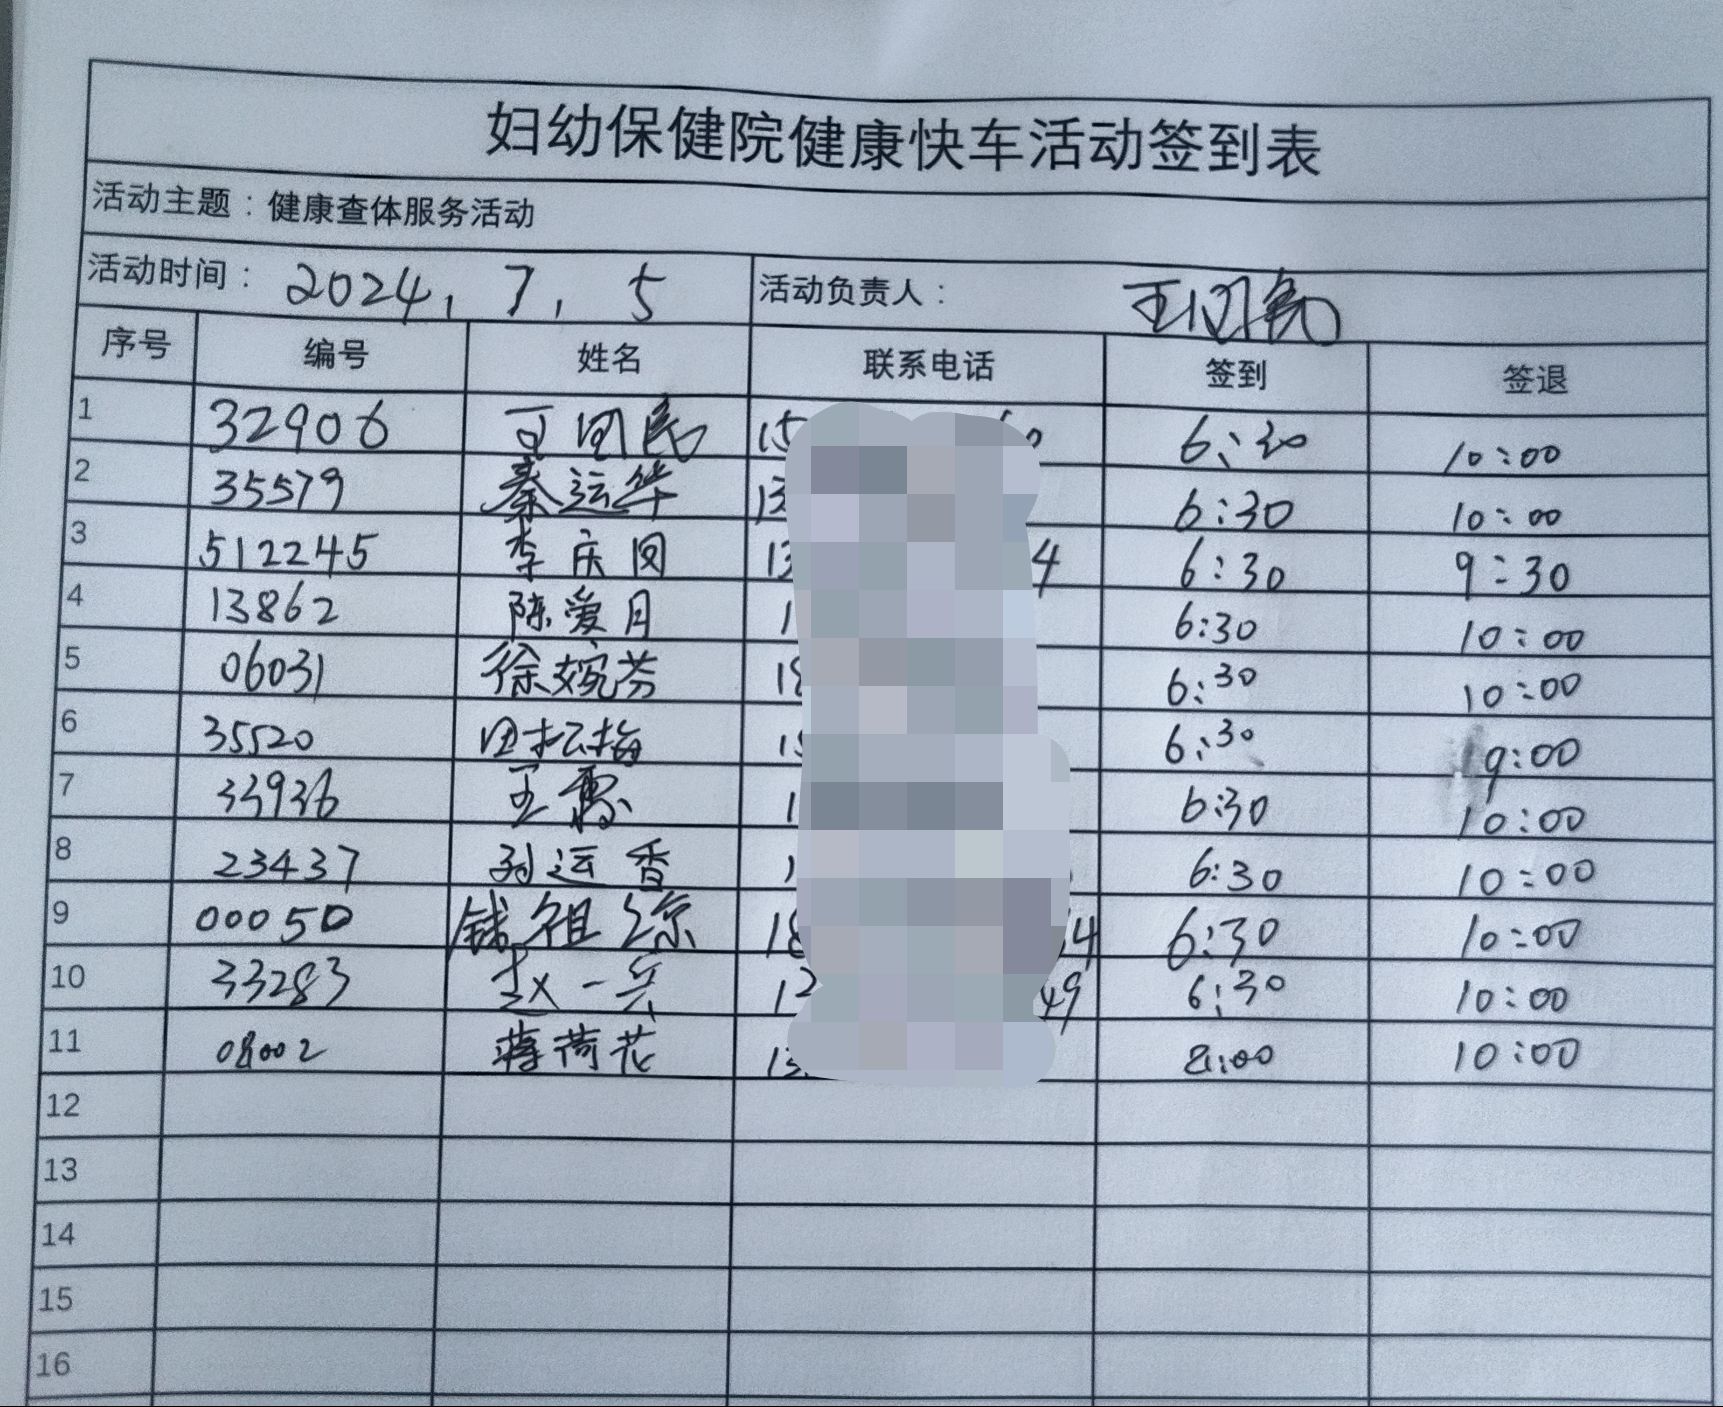 妇幼保健院健康快车活动签到表
活动主题：健康查体服务活动
活动时间：2024，7，5 活动负责人：
序号 编号 姓名 联系电话 签到 签退
1 32906 15 6:30 10:00
2 35579 秦运华 13 6:30 10:00
3 512245 李庆凤 13 4 6:30 9:30
4 13862 陈爱月 1 6:30 10:00
5 06031 徐婉芬 18 6:30 10:00
6 35520 田松梅 6:30 9:00
7 33936 1 6:30 10:00
8 23437 孙运香 1 6:30 10:00
9 00050 钱祖琼 18 4 6:30 10:00
10 33283 赵一兵 49 6:30 10:00
11 08002 蒋荷花 13 8:00 10:00
12
13
14
15
16